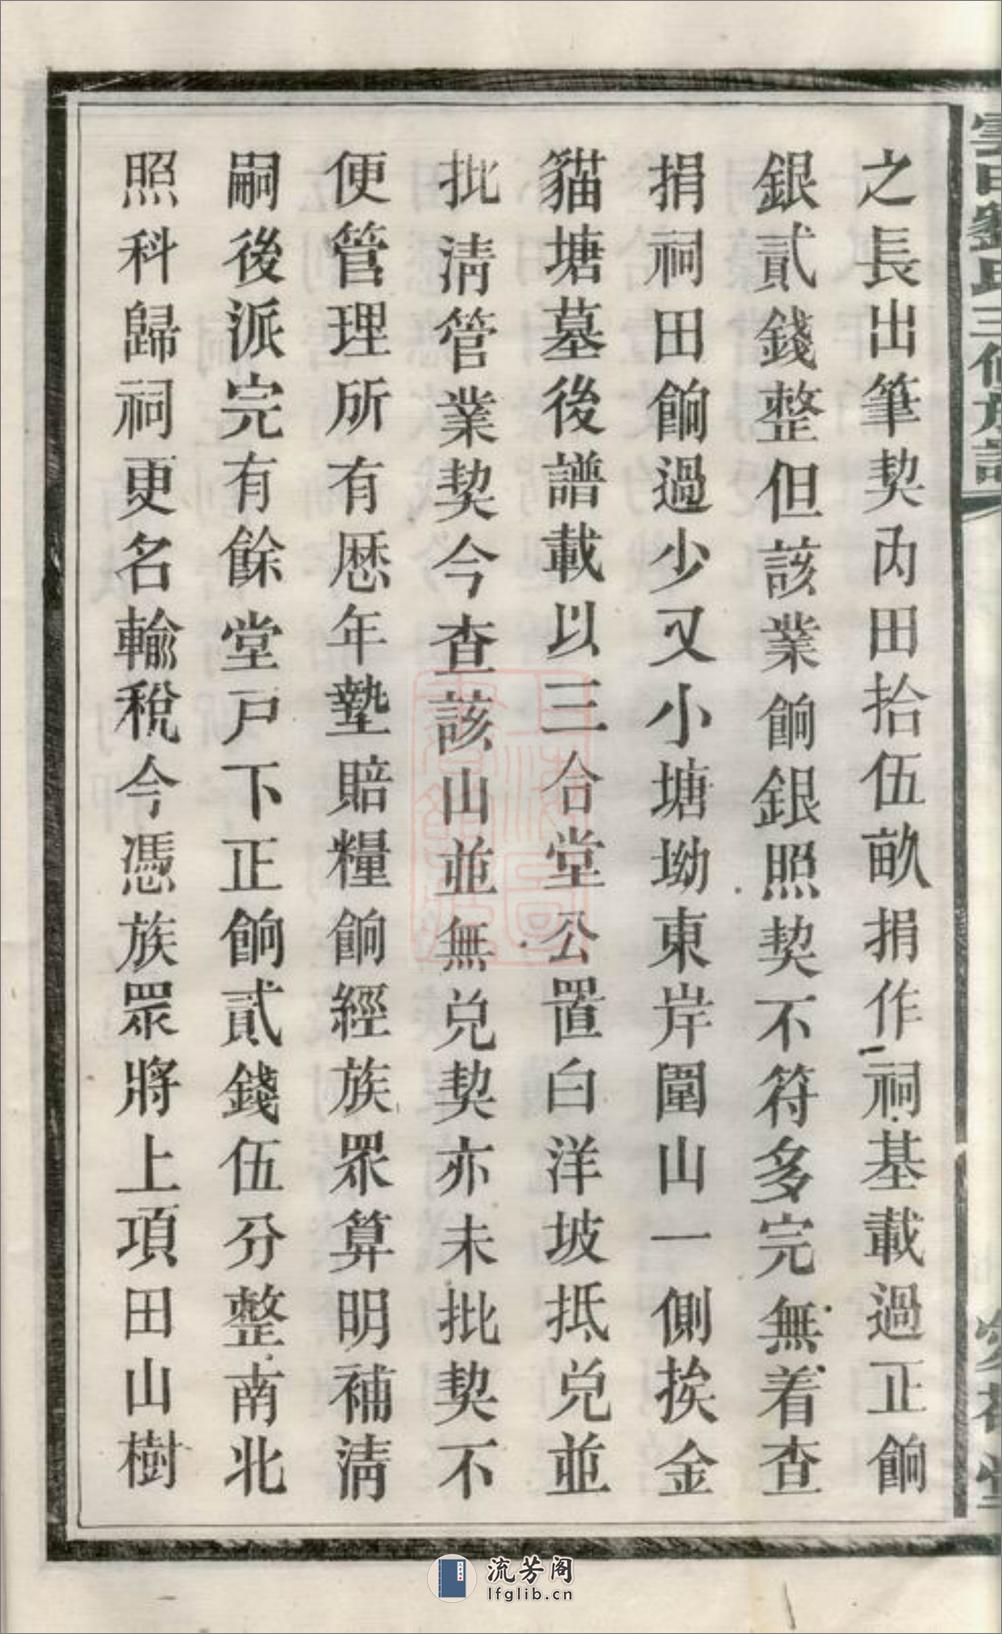 之長出筆契內田拾伍畝捐作祠基載過正餉
銀貳錢整但該業餉銀照契不符多完無着查
捐祠田餉過少又小塘坳東岸圍山一側挨金
貓塘墓後譜載以三合堂公置白洋坡抵兌並
批清管業契今查該山並無兌契亦未批契不
便管理所有歷年墊賠糧餉經族眾算明補清
嗣後派完有餘堂戶下正餉貳錢伍分整南北
照科歸祠更名輸稅今憑族眾將上項田山樹
流芳阁
lfglib.cn